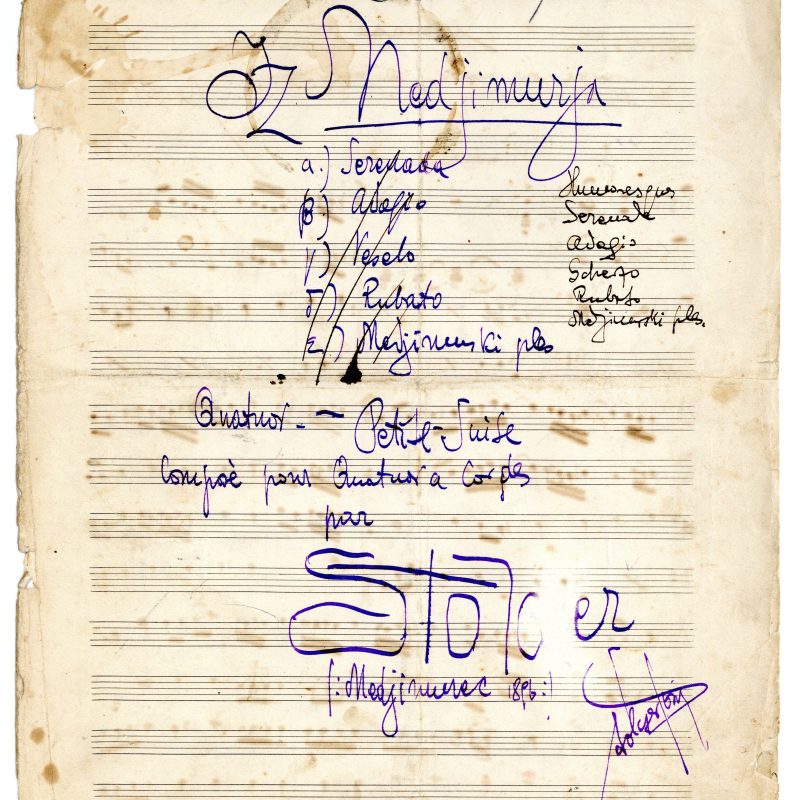 Z Medjimurja
a.) Serenada
β) Adagio
γ) Veselo
δ) Rubato
ε) Medjimurski ples
Humoresque
Serenade
Adagio
Scherzo
Rubato
Medjimurski ples.
Quatuor - Petite-Suite
Composè pour Quatuor a Cordes
par
Stolcer
(: Medjimurec 1896 :)